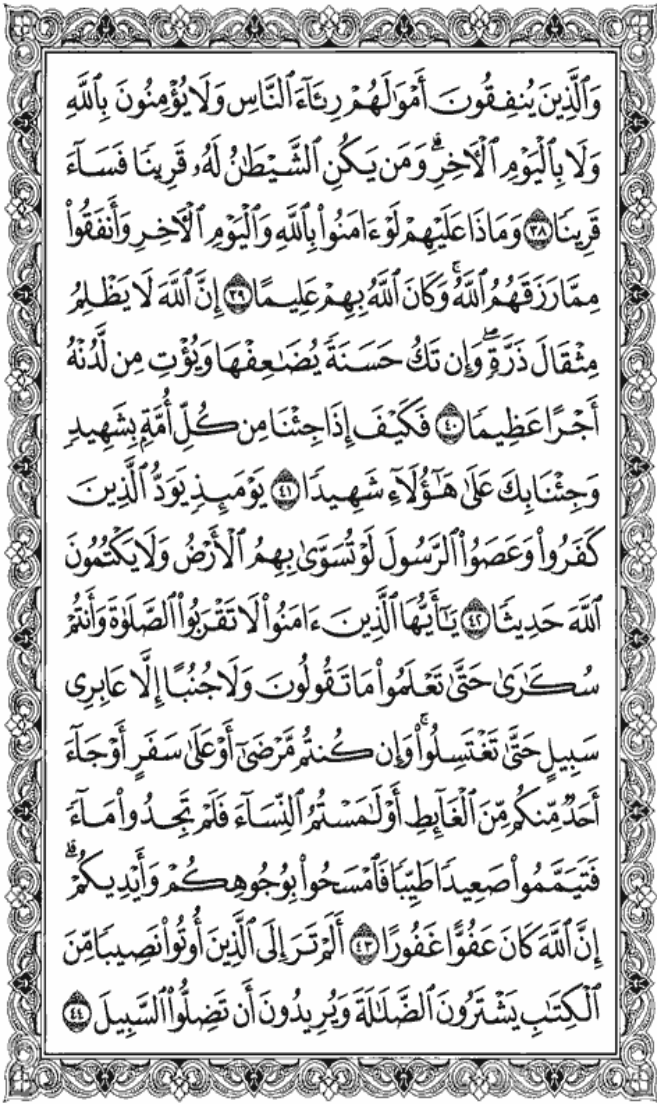 وَٱلَّذِينَ يُنفِقُونَ أَمْوَٰلَهُمْ رِئَآءَ ٱلنَّاسِ وَلَا يُؤْمِنُونَ بِٱللَّهِ
وَلَا بِٱلْيَوْمِ ٱلْـَٔاخِرِۗ وَمَن يَكُنِ ٱلشَّيْطَٰنُ لَهُۥ قَرِينًا فَسَآءَ
قَرِينًا ٣٨ وَمَاذَا عَلَيْهِمْ لَوْ ءَامَنُوا۟ بِٱللَّهِ وَٱلْيَوْمِ ٱلْـَٔاخِرِ وَأَنفَقُوا۟
مِمَّا رَزَقَهُمُ ٱللَّهُۚ وَكَانَ ٱللَّهُ بِهِمْ عَلِيمًا ٣٩ إِنَّ ٱللَّهَ لَا يَظْلِمُ
مِثْقَالَ ذَرَّةٍۖ وَإِن تَكُ حَسَنَةً يُضَٰعِفْهَا وَيُؤْتِ مِن لَّدُنْهُ
أَجْرًا عَظِيمًا ٤٠ فَكَيْفَ إِذَا جِئْنَا مِن كُلِّ أُمَّةٍۭ بِشَهِيدٍ
وَجِئْنَا بِكَ عَلَىٰ هَٰٓؤُلَآءِ شَهِيدًا ٤١ يَوْمَئِذٍ يَوَدُّ ٱلَّذِينَ
كَفَرُوا۟ وَعَصَوُا۟ ٱلرَّسُولَ لَوْ تُسَوَّىٰ بِهِمُ ٱلْأَرْضُ وَلَا يَكْتُمُونَ
ٱللَّهَ حَدِيثًا ٤٢ يَٰٓأَيُّهَا ٱلَّذِينَ ءَامَنُوا۟ لَا تَقْرَبُوا۟ ٱلصَّلَوٰةَ وَأَنتُمْ
سُكَٰرَىٰ حَتَّىٰ تَعْلَمُوا۟ مَا تَقُولُونَ وَلَا جُنُبًا إِلَّا عَابِرِى
سَبِيلٍ حَتَّىٰ تَغْتَسِلُوا۟ۚ وَإِن كُنتُم مَّرْضَىٰٓ أَوْ عَلَىٰ سَفَرٍ أَوْ جَآءَ
أَحَدٌ مِّنكُم مِّنَ ٱلْغَآئِطِ أَوْ لَٰمَسْتُمُ ٱلنِّسَآءَ فَلَمْ تَجِدُوا۟ مَآءً
فَتَيَمَّمُوا۟ صَعِيدًا طَيِّبًا فَٱمْسَحُوا۟ بِوُجُوهِكُمْ وَأَيْدِيكُمْۗ
إِنَّ ٱللَّهَ كَانَ عَفُوًّا غَفُورًا ٤٣ أَلَمْ تَرَ إِلَى ٱلَّذِينَ أُوتُوا۟ نَصِيبًا مِّنَ
ٱلْكِتَٰبِ يَشْتَرُونَ ٱلضَّلَٰلَةَ وَيُرِيدُونَ أَن تَضِلُّوا۟ ٱلسَّبِيلَ ٤٤